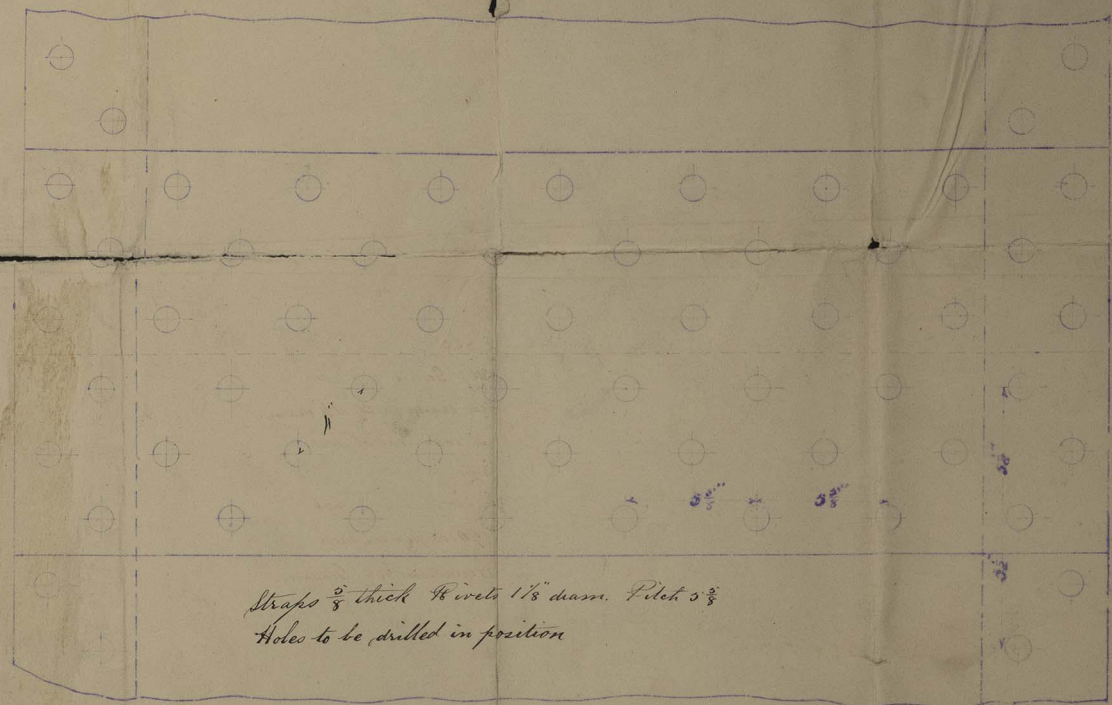 5 5/8"
5 5/8"
Straps 5/8 thick Rivets 1 1/8" diam. Pitch 5 5/8
Holes to be drilled in position